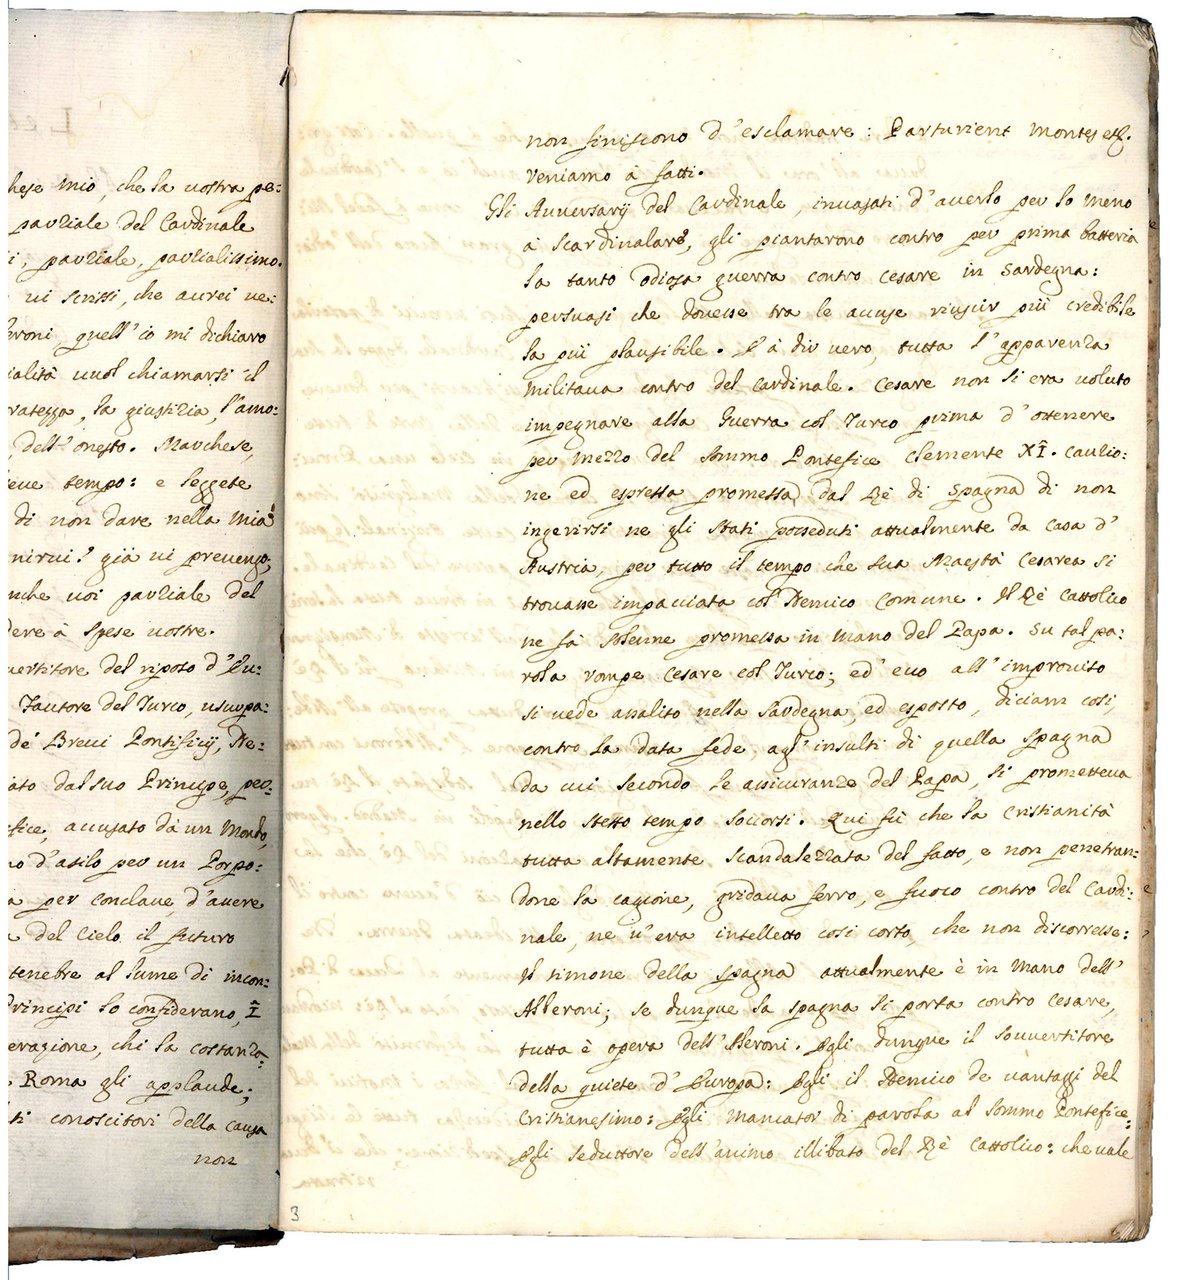 hese mio, che la vostra pe:
parziale del Cardinale
i, parziale, parzialissimo.
vi scrissi, che avrei ve:
beroni, quell' io mi dichiaro
ialità vuol chiamarsi il
ratezza, la giustizia, l'amo:
dell' onesto. Marchese,
ieve tempo: e leggete
di non dare nella mia
nirvi? già vi prevengo,
nche voi parziale del
dere à spese vostre.
vertitore del riposo d'Eu:
Fautore del Turco, usurpa:
de' Brevi Pontificij, Ne:
ato dal suo Principe, per:
efice, accusato dà un Mondo,
no d'asilo per un Porpo:
a per Conclave, d'avere
a del Cielo il futuro
tenebre al lume di incon:
Principi lo confiderano, I
erazione, chi la costanza:
Roma gli applaude;
ti conoscitori della causa
non
non finiscono d'esclamare: Parturient montes etc.
veniamo à fatti.
Gli Avversarij del Cardinale, invasati d'averlo per lo meno
à scardinalare, gli piantarono contro per prima batteria
la tanto odiosa guerra contro Cesare in Sardegna:
persuasi che dovesse tra le accuse riuscir più credibile
la più plausibile. E à dir vero, tutta l'apparenza
militava contro del Cardinale. Cesare non si era voluto
impegnare alla Guerra col Turco prima d'ottenere
per mezzo del Sommo Pontefice Clemente XI. Cauzio:
ne ed espressa promessa dal Rè di Spagna di non
ingerirsi ne gli Stati posseduti attualmente da Casa d'
Austria, per tutto il tempo che sua Maestà Cesarea si
trovasse impacciata col Nemico Comune. Il Rè Cattolico
ne fà solenne promessa in mano del Papa. Su tal pa:
rola rompe Cesare col Turco; ed' ecco all' improvviso
si vede assalito nella Sardegna, ed esposto, diciam così,
contro la data fede, agl' insulti di quella Spagna
da cui secondo le assicuranze del Papa, si prometteva
nello stesso tempo soccorsi. Qui fù che la Cristianità
tutta altamente scandalezzata del fatto, e non penetran:
done la cagione, gridava ferro, e fuoco contro del Cardi:
nale, ne v'era intelletto così corto, che non discorresse:
Il timone della Spagna attualmente è in mano dell'
Alberoni; se dunque la Spagna si porta contro Cesare,
tutta è opera dell' Alberoni. Egli dunque il souvertitore
della quiete d'Europa: Egli il Nemico de vantaggi del
Cristianesimo: Egli mancator di parola al Sommo Pontefice:
Egli seduttore dell'animo illibato del Rè Cattolico: che vale
3